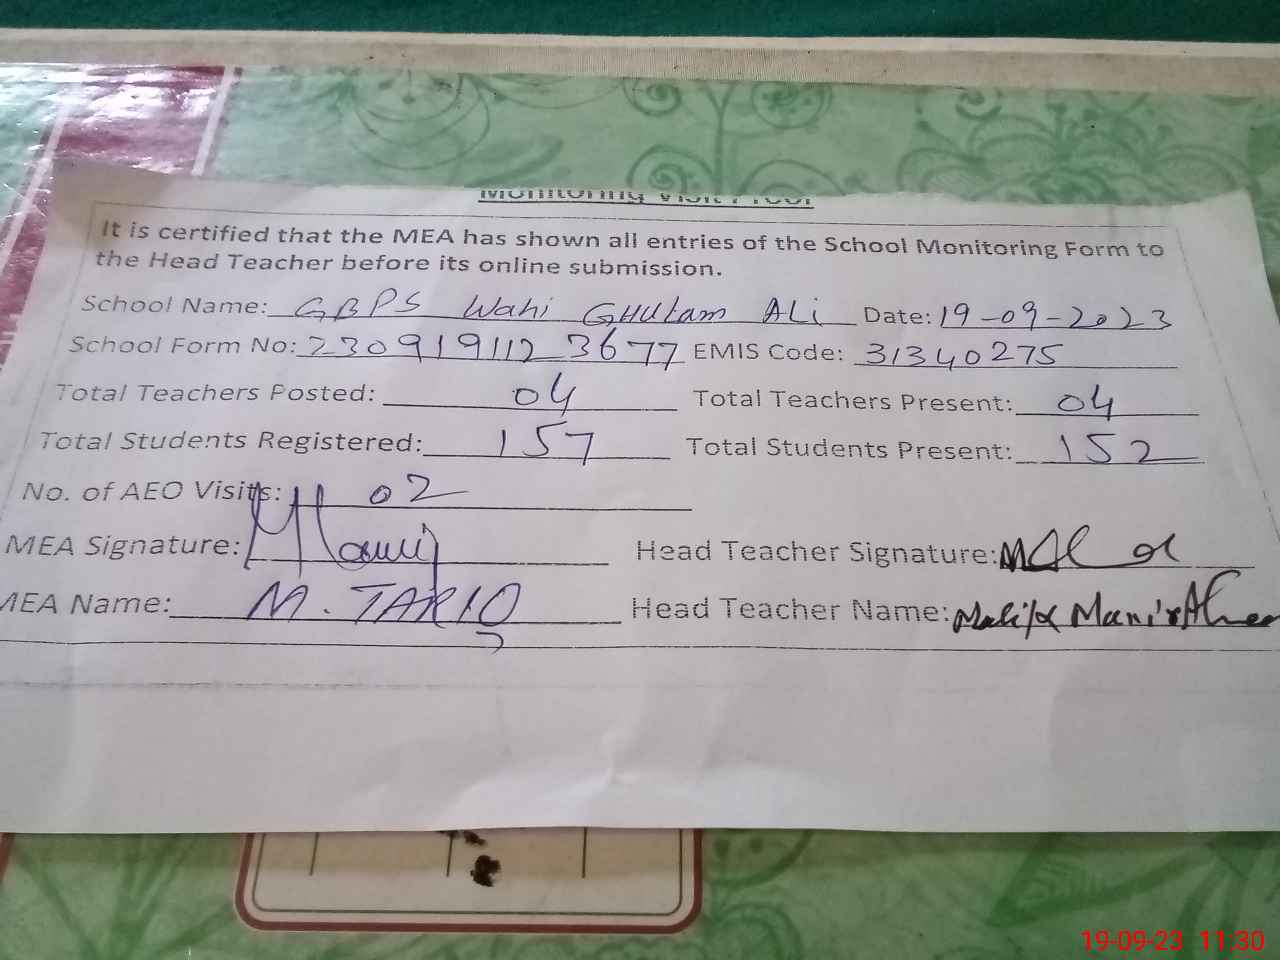 Monitoring Visit Proof
It is certified that the MEA has shown all entries of the School Monitoring Form to
the Head Teacher before its online submission.
School Name: GBPS Wahi GHULAM ALi Date: 19-09-2023
School Form No: 2309191123677 EMIS Code: 31340275
Total Teachers Posted: 04 Total Teachers Present: 04
Total Students Registered: 157 Total Students Present: 152
No. of AEO Visits: 02
MEA Signature: Head Teacher Signature:
MEA Name: M. TARIQ Head Teacher Name:
19-09-23 11:30